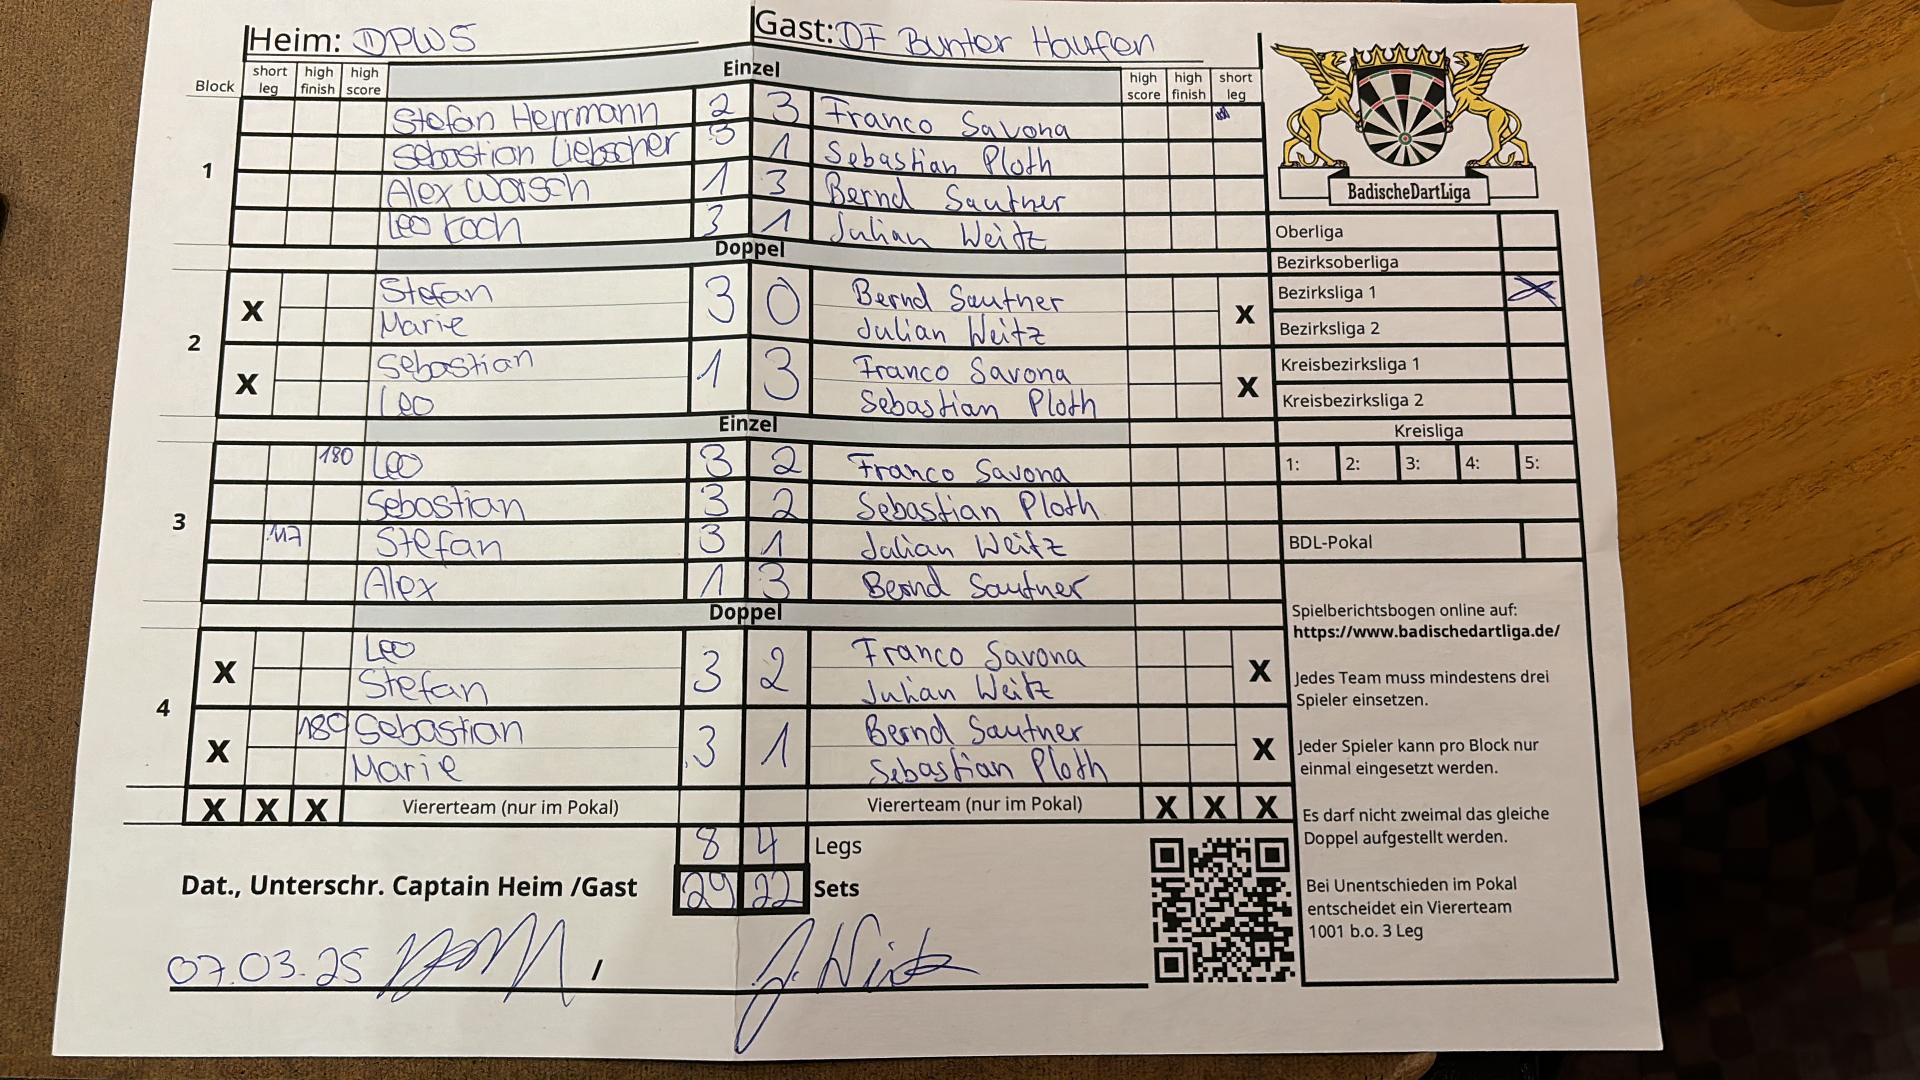 Heim: DPWS Gast: DF Bunter Haufen
Block short leg high finish high score Einzel high score high finish short leg
1
Stefan Herrmann 2 3 Franco Savona
Sebastian Liebscher 3 1 Sebastian Ploth
Alex Watsch 1 3 Bernd Sautner
Leo Koch 3 1 Julian Weitz
Doppel
2
X Stefan 3 0 Bernd Sautner X
Marie Julian Weitz
X Sebastian 1 3 Franco Savona X
Leo Sebastian Ploth
Einzel
3
180 Leo 3 2 Franco Savona
Sebastian 3 2 Sebastian Ploth
117 Stefan 3 1 Julian Weitz
Alex 1 3 Bernd Sautner
Doppel
4
X Leo 3 2 Franco Savona X
Stefan Julian Weitz
X 180 Sebastian 3 1 Bernd Sautner X
Marie Sebastian Ploth
X X X Viererteam (nur im Pokal) Viererteam (nur im Pokal) X X X
8 4 Legs
Dat., Unterschr. Captain Heim /Gast 29 22 Sets
07.03.25 /
BadischeDartLiga
Oberliga
Bezirksoberliga
Bezirksliga 1 X
Bezirksliga 2
Kreisbezirksliga 1
Kreisbezirksliga 2
Kreisliga
1: 2: 3: 4: 5:
BDL-Pokal
Spielberichtsbogen online auf:
https://www.badischedartliga.de/
Jedes Team muss mindestens drei
Spieler einsetzen.
Jeder Spieler kann pro Block nur
einmal eingesetzt werden.
Es darf nicht zweimal das gleiche
Doppel aufgestellt werden.
Bei Unentschieden im Pokal
entscheidet ein Viererteam
1001 b.o. 3 Leg